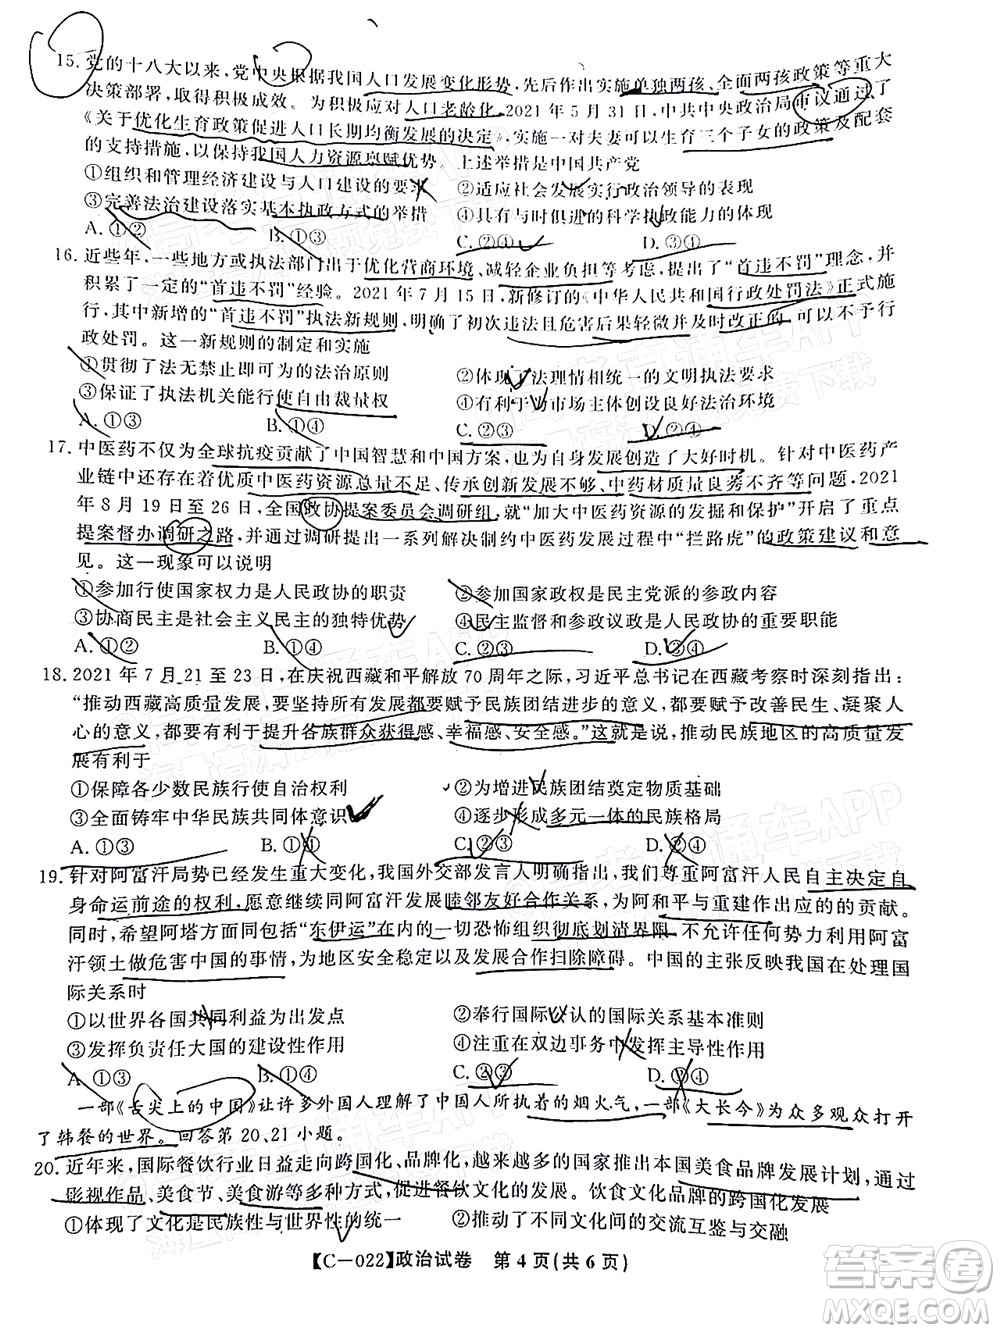 15. 党的十八大以来,党中央根据我国人口发展变化形势,先后作出实施单独两孩、全面两孩政策等重大
决策部署,取得积极成效。为积极应对人口老龄化,2021年5月31日,中共中央政治局审议通过了
《关于优化生育政策促进人口长期均衡发展的决定》,实施一对夫妻可以生育三个子女的政策及配套
的支持措施,以保持我国人力资源禀赋优势。上述举措是中国共产党
①组织和管理经济建设与人口建设的要求 ②适应社会发展实行政治领导的表现
③完善法治建设落实基本执政方式的举措 ④具有与时俱进的科学执政能力的体现
A. ①② B. ①③ C. ②④ D. ③④
16. 近些年,一些地方或执法部门出于优化营商环境、减轻企业负担等考虑,提出了“首违不罚”理念,并
积累了一定的“首违不罚”经验。2021年7月15日,新修订的《中华人民共和国行政处罚法》正式施
行,其中新增的“首违不罚”执法新规则,明确了初次违法且危害后果轻微并及时改正的,可以不予行
政处罚。这一新规则的制定和实施
①贯彻了法无禁止即可为的法治原则 ②体现了法理情相统一的文明执法要求
③保证了执法机关能行使自由裁量权 ④有利于为市场主体创设良好法治环境
A. ①③ B. ①④ C. ②③ D. ②④
17. 中医药不仅为全球抗疫贡献了中国智慧和中国方案,也为自身发展创造了大好时机。针对中医药产
业链中还存在着优质中医药资源总量不足、传承创新发展不够、中药材质量良莠不齐等问题,2021
年8月19日至26日,全国政协提案委员会调研组,就“加大中医药资源的发掘和保护”开启了重点
提案督办调研之路,并通过调研提出一系列解决制约中医药发展过程中“拦路虎”的政策建议和意
见。这一现象可以说明
①参加行使国家权力是人民政协的职责 ②参加国家政权是民主党派的参政内容
③协商民主是社会主义民主的独特优势 ④民主监督和参政议政是人民政协的重要职能
A. ①③ B. ①④ C. ②③ D. ③④
18. 2021年7月21至23日,在庆祝西藏和平解放70周年之际,习近平总书记在西藏考察时深刻指出:
“推动西藏高质量发展,要坚持所有发展都要赋予民族团结进步的意义,都要赋予改善民生、凝聚人
心的意义,都要有利于提升各族群众获得感、幸福感、安全感。”这就是说,推动民族地区的高质量发
展有利于
①保障各少数民族行使自治权利 ②为增进民族团结奠定物质基础
③全面铸牢中华民族共同体意识 ④逐步形成多元一体的民族格局
A. ①③ B. ①④ C. ②③ D. ②④
19. 针对阿富汗局势已经发生重大变化,我国外交部发言人明确指出,我们尊重阿富汗人民自主决定自
身命运前途的权利,愿意继续同阿富汗发展睦邻友好合作关系,为阿和平与重建作出应的的贡献。
同时,希望阿塔方面同包括“东伊运”在内的一切恐怖组织彻底划清界限,不允许任何势力利用阿富
汗领土做危害中国的事情,为地区安全稳定以及发展合作扫除障碍。中国的主张反映我国在处理国
际关系时
①以世界各国共同利益为出发点 ②奉行国际公认的国际关系基本准则
③发挥负责任大国的建设性作用 ④注重在双边事务中发挥主导性作用
A. ①③ B. ①④ C. ②③ D. ②④
一部《舌尖上的中国》让许多外国人理解了中国人所执着的烟火气,一部《大长今》为众多观众打开
了韩餐的世界。回答第20、21小题。
20. 近年来,国际餐饮行业日益走向跨国化、品牌化,越来越多的国家推出本国美食品牌发展计划,通过
影视作品、美食节、美食游等多种方式,促进餐饮文化的发展。饮食文化品牌的跨国化发展
①体现了文化是民族性与世界性的统一 ②推动了不同文化间的交流互鉴与交融
【C—022】政治试卷 第4页(共6页)
答案圈
MXQE.COM